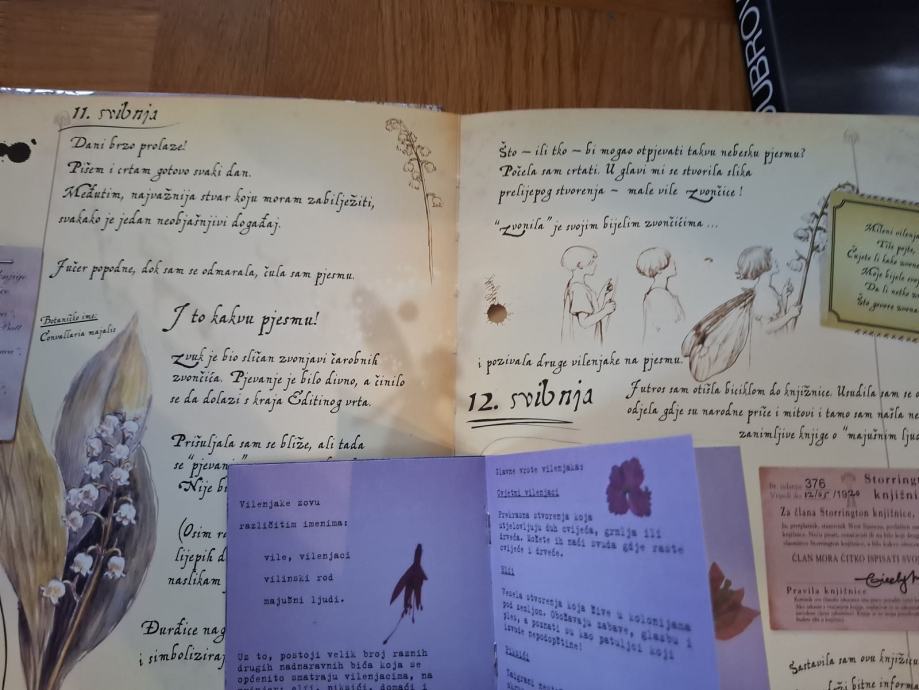 11. svibnja
Dani brzo prolaze!
Pišem i crtam gotovo svaki dan.
Međutim, najvažnija stvar koju moram zabilježiti,
svakako je jedan neobjašnjivi događaj.
Jučer popodne, dok sam se odmarala, čula sam pjesmu.
Botaničko ime:
Convallaria majalis
I to kakvu pjesmu!
Zvuk je bio sličan zvonjavi čarobnih
zvončića. Pjevanje je bilo divno, a činilo
se da dolazi s kraja Editinog vrta.
Prišuljala sam se bliže, ali tada
se "pjevanj
Nije bi
(Osim
lijepih d
naslikam
Đurđice nag
i simboliziraj
Što – ili tko – bi mogao otpjevati takvu nebesku pjesmu?
Počela sam crtati. U glavi mi se stvorila slika
prelijepog stvorenja – male vile Zvončice!
"Zvonila" je svojim bijelim zvončićima ...
i pozivala druge vilenjake na pjesmu.
12. svibnja
Jutros sam otišla biciklom do knjižnice. Usudila sam se
odjela gdje su narodne priče i mitovi i tamo sam našla
zanimljive knjige o "majušnim
Vilenjake zovu
različitim imenima:
vile, vilenjaci
vilinski rod
majušni ljudi.
Uz to, postoji velik broj raznih
drugih nadnaravnih bića koja se
općenito smatraju vilenjacima, na
Glavne vrste vilenjaka:
Cvjetni vilenjaci
Prekrasna stvorenja koja
utjelovljuju duh cvijeća, grmlja ili
drveća. Možete ih naći svuda gdje raste
cvijeće i drveće.
Elfi
Vesela stvorenja koja žive u kolonijama
pod zemljom. Obožavaju zabave, glazbu i
ples, a poznati su kao patuljci koji
izvode nepodopštine!
Piksiji
Zaigrani
Mileni vilenja
Tiho pojte,
Čujete li kako zvone
Moje bijelo
Da li netko
Što govore zvona
376
12/05/1920
Storring
knjižni
Za člana Storrington knjižnice,
ČLAN MORA ČITKO ISPISATI SVO
Pravila knjižnice
Sastavila sam ovu knjižicu
bitne informa
UBROV